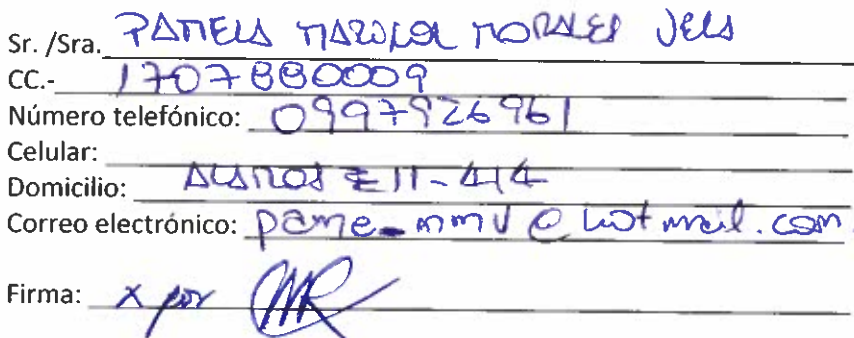 Sr. /Sra. PAMELA MARISOL MORALES VELA
CC.- 1707880009
Número telefónico: 0997926961
Celular:
Domicilio: ALAMOS E11-414
Correo electrónico: pame_mmv@hotmail.com
Firma: x por